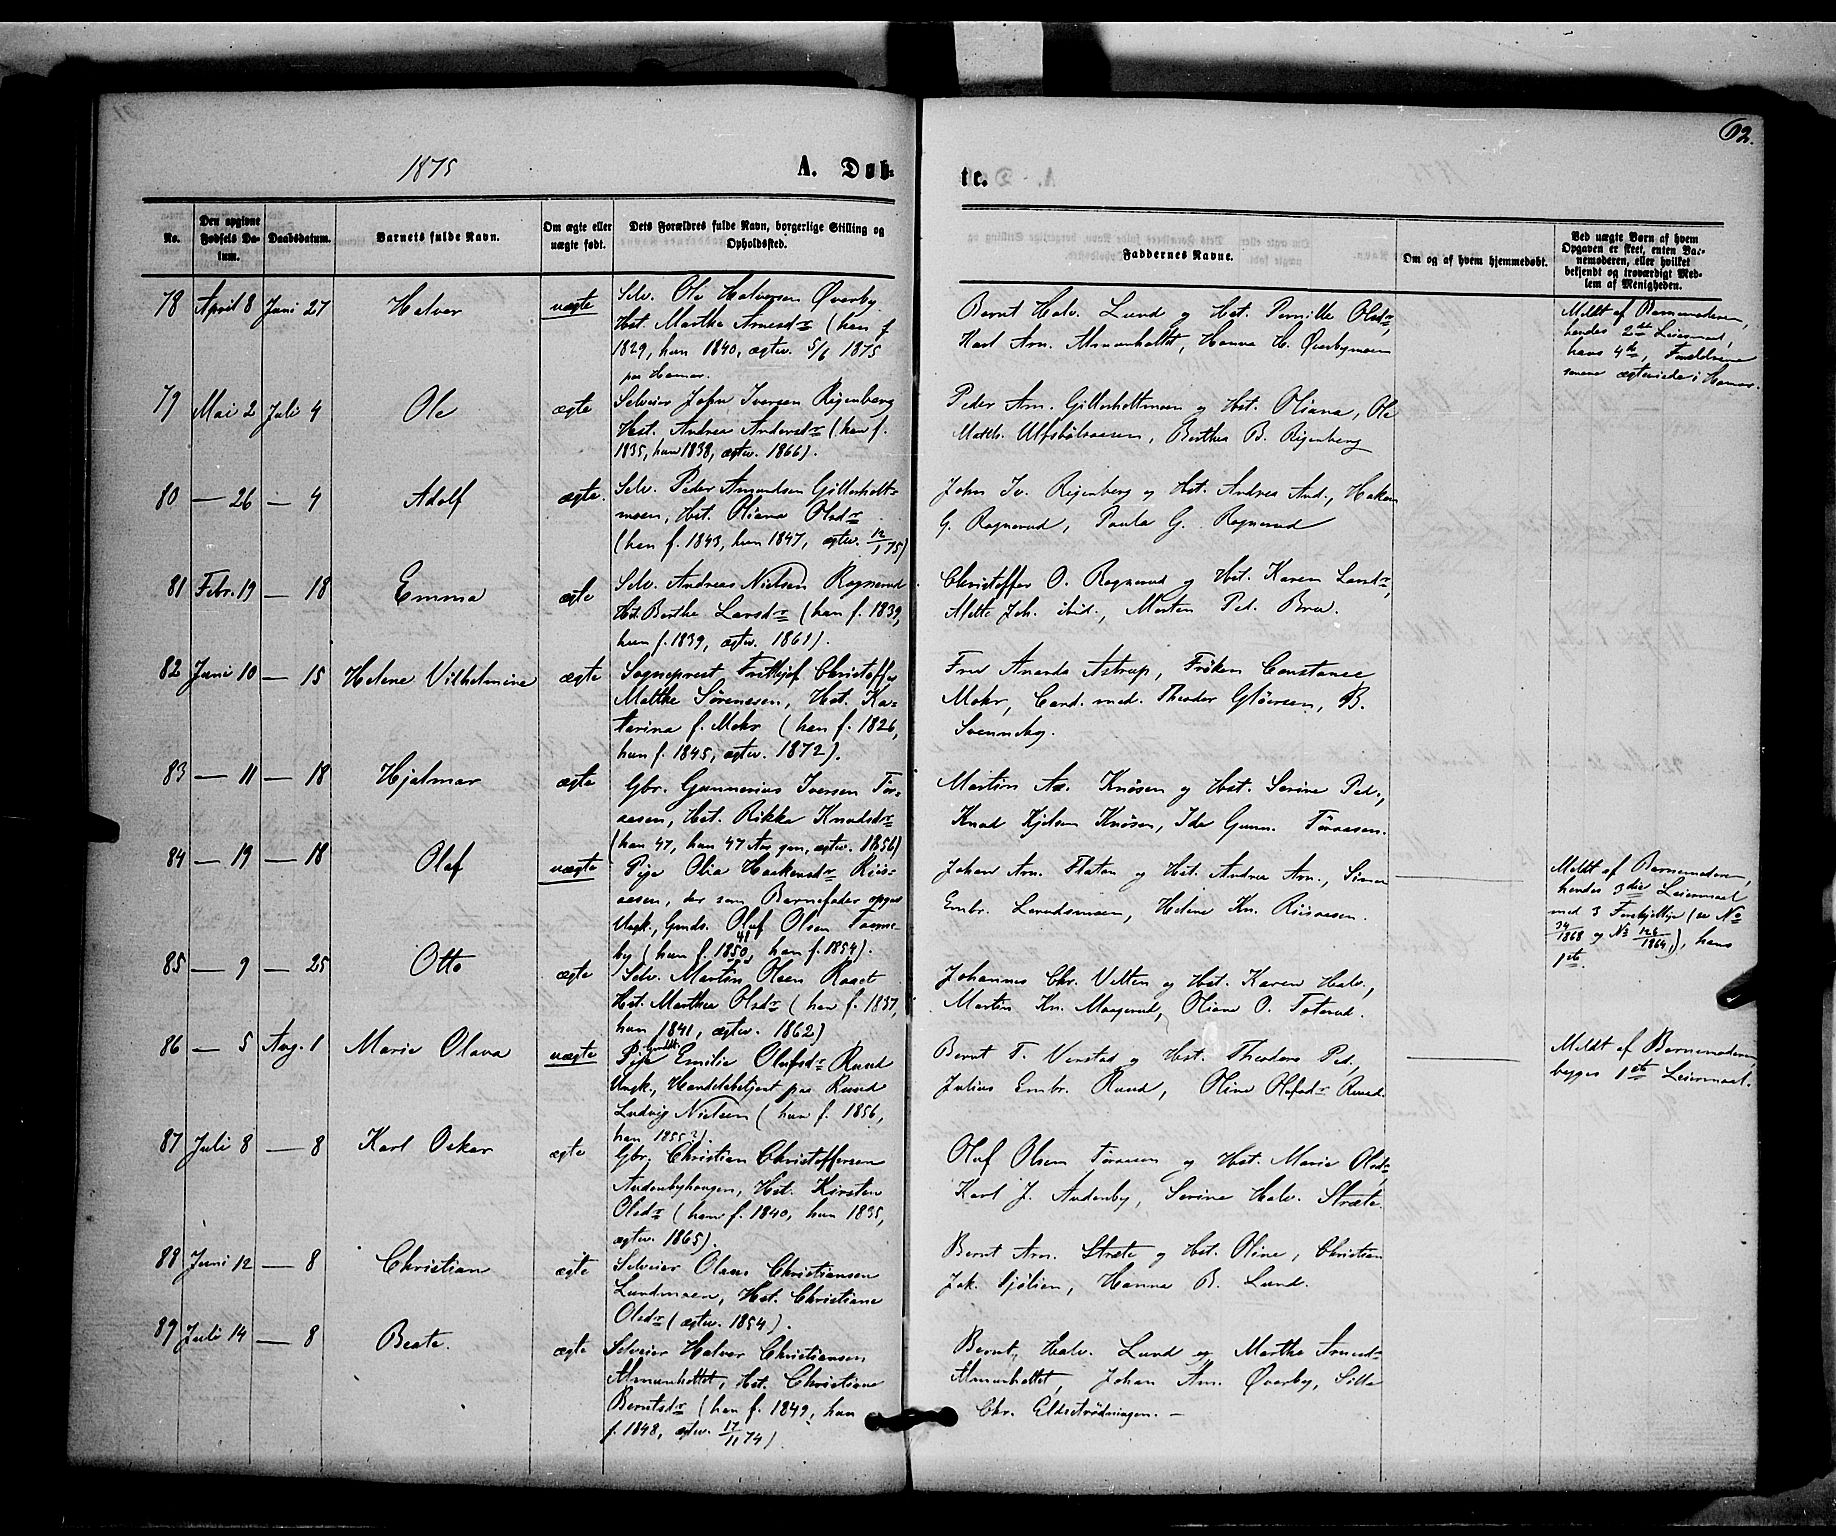 62.
1875
A. Døb-
te.
No.
Den opgivne Fødsels Datum.
Daabsdatum.
Barnets fulde Navn.
Om ægte eller uægte født.
Dets Forældres fulde Navn, borgerlige Stilling og Opholdssted.
Faddernes Navne.
Om og af hvem hjemmedøbt.
Ved uægte Børn af hvem Opgaven er skeet, enten Barnemoderen, eller hvilket bekjendt og troværdigt Medlem af Menigheden.
78 April 8 Juni 27 Halvor uægte
Selv. Ole Halvorsen Øverby
Hst. Marthe Arnesdr (han f.
1829, hun 1840, ægtev. 5/6 1875
paa Hamar.
Bernt Halv. Lund og Hst. Pernille Olsdr,
Karl Arn. Almenhottet, Hanna H. Øverbymoen
Meldt af Barnemoderen,
hendes 2det Leiermaal,
hans 4de, Forældrene
senere ægteviede i Hamar.
79 Mai 2 Juli 4 Ole ægte
Selveier John Iversen Rigenberg
Hst. Andrea Andersdr (han f.
1835, hun 1838, ægtev. 1866).
Peder Am. Gillerholtmoen og Hst. Oliana, Ole
Math. Ulfsbølsaasen, Berthea B. Rigenberg
80 — 26 — 4 Adolf ægte.
Selv. Peder Amundsen Gillerholt-
moen, Hst. Oliana Olsdr
(han f. 1843, hun 1847, ægtev. 12/1 75)
John Iv. Rigenberg og Hst. Andrea And., Haken
G. Rognerud, Paula G. Rognerud
81 Febr. 19 — 18 Emma ægte
Selv. Andreas Nielsen Rognerud
Hst. Berthe Larsdr (han f. 1839,
hun f. 1839, ægtev. 1861).
Christoffer O. Rognerud og Hst. Karen Larsdr,
Mette Joh. ibid., Morten Ped. Bra.
82 Juni 10 — 15 Helene Vilhelmine ægte
Sogneprest Frithjof Christoffer
Malthe Sørenssen, Hst. Ka-
tarina f. Mohr (han f. 1826,
hun f. 1845, ægtev. 1872).
Fru Amanda Astrup, Frøken Constance
Mohr, Cand. med. Theodor Gløersen, B.
83 — 11 — 18 Hjalmar ægte
Gbr. Gunnerius Iversen Tør-
aasen, Hst. Rikka Knudsdr
(han 47, hun 47 Aar gm, ægtev. 1856)
Martin Aa. Knøsen og Hst. Serine Ped.,
Knud Kjelsen Knøsen, Ida Gunn. Tøraasen.
84 — 19 — 18 Olaf uægte
Pige Olia Haakensdr Riis-
aasen, der som Barnefader opgav
Ungk., Gmds. Olaf Olsen Tomme-
by (hun f. 1841, han f. 1854).
Johan Arn. Flaten og Hst. Andrea Arn., Simen
Embr. Lundsmoen, Helene Kn. Riisaasen.
Meldt af Barnemoderen,
hendes 3die Leiermaal
med 3 Forskjellige (se No
24/1868 og No 126/1864), hans
1ste.
85 — 9 — 25 Otto ægte
Selv. Martin Olsen Raaet
Hst. Marthea Olsdr (han f. 1837,
hun 1841, ægtev. 1862)
Johannes Chr. Velten og Hst. Karen Halv.,
Martin Kn. Magerud, Oliane O. Toterud.
86 — 5 Aug. 1 Marie Olava uægte
Pige Emilie Olafsdr Ruud
Ungk., Handelsbetjent paa Ruud
Ludvig Nielsen (hun f. 1856,
han 1855?).
Bernt T. Venstad og Hst. Theodora Ped.,
Julius Embr. Ruud, Oline Olafsdr Ruud.
Meldt af Barnemoderen,
begges 1ste Leiermaal.
87 Juli 8 — 8 Karl Oskar ægte
Gbr. Christian Christoffersen
Audenbyhaugen, Hst. Kirsten
Olsdr (han f. 1840, hun 1835,
ægtev. 1865).
Olaf Olsen Tøraasen og Hst. Marie Olsdr,
Karl J. Audenby, Serine Halv. Stræte.
88 Juni 12 — 8 Christian ægte
Selveier Olaus Christiansen
Lundmoen, Hst. Christiane
Olsdr (ægtev. 1854).
Bernt Arn. Stræte og Hst. Oline, Christian
Jak. Pjølien, Hanna B. Lund.
89 Juli 14 — 8 Beate. ægte
Selveier Halvor Christiansen
Almenhottet, Hst. Christiane
Berntsdr (han f. 1849, hun
f. 1848, ægtev. 17/11 74).
Bernt Halv. Lund og Marthe Amundr
Almenhottet, Johan Am. Øverby, Sille
Chr. Eldsetrødningen. —